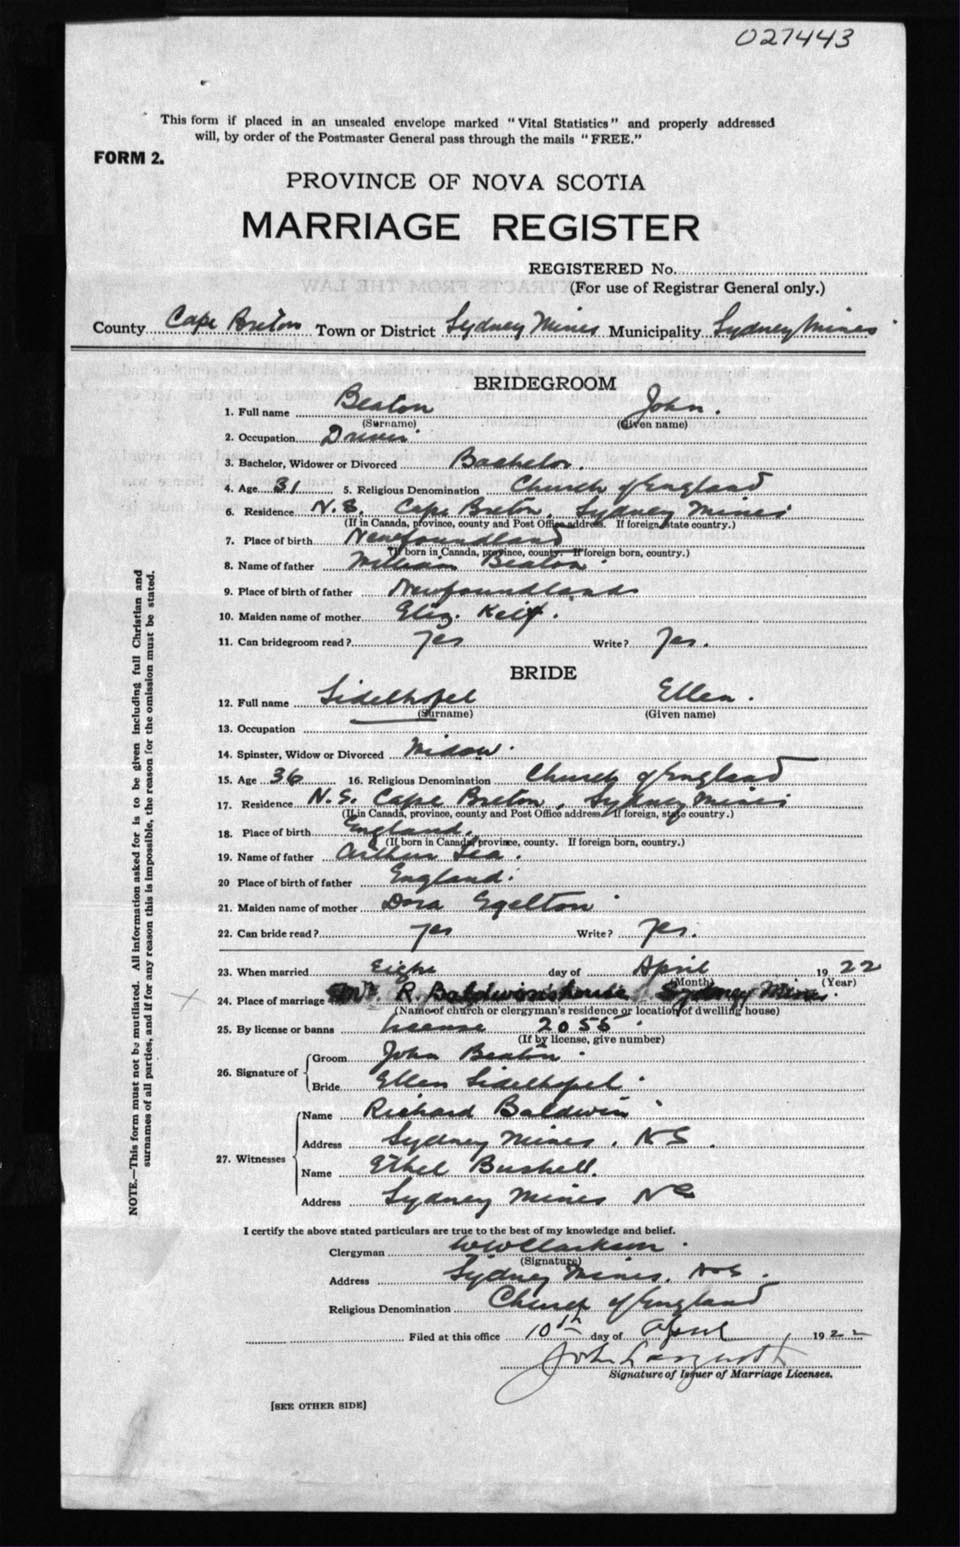 027443
This form if placed in an unsealed envelope marked "Vital Statistics" and properly addressed
will, by order of the Postmaster General pass through the mails "FREE."
FORM 2.
PROVINCE OF NOVA SCOTIA
MARRIAGE REGISTER
REGISTERED No.
(For use of Registrar General only.)
County Cape Breton Town or District Sydney Mines Municipality Sydney Mines
BRIDEGROOM
1. Full name Beaton John.
(Surname) (Given name)
2. Occupation Driver.
3. Bachelor, Widower or Divorced Bachelor.
4. Age 31 5. Religious Denomination Church of England
6. Residence N.S. Cape Breton, Sydney Mines
(If in Canada, province, county and Post Office address. If foreign, state country.)
7. Place of birth Newfoundland
(If born in Canada, province, county. If foreign born, country.)
8. Name of father William Beaton.
9. Place of birth of father Newfoundland
10. Maiden name of mother Eliz.
11. Can bridegroom read? Yes Write? Yes.
BRIDE
12. Full name Sidelhopel Ellen.
(Surname) (Given name)
13. Occupation
14. Spinster, Widow or Divorced Widow.
15. Age 36 16. Religious Denomination Church of England
17. Residence N.S. Cape Breton, Sydney Mines
(If in Canada, province, county and Post Office address. If foreign, state country.)
18. Place of birth England.
(If born in Canada, province, county. If foreign born, country.)
19. Name of father Arthur Lea.
20 Place of birth of father England.
21. Maiden name of mother Dora Egelton
22. Can bride read? Yes Write? Yes.
23. When married Eight day of April 1922
(Month) (Year)
24. Place of marriage R. Baldwin's house Sydney Mines.
(Name of church or clergyman's residence or location of dwelling house)
25. By license or banns License 2055.
(If by license, give number)
26. Signature of Groom John Beaton.
Bride Ellen Sidelhopel.
27. Witnesses Name Richard Baldwin
Address Sydney Mines, NS.
Name Ethel Bushell.
Address Sydney Mines NS
I certify the above stated particulars are true to the best of my knowledge and belief.
Clergyman WW Clarkson.
(Signature)
Address Sydney Mines, N.S.
Religious Denomination Church of England
Filed at this office 10th day of April 1922
John
Signature of Issuer of Marriage Licenses.
[SEE OTHER SIDE]
NOTE.—This form must not be mutilated. All information asked for is to be given including full Christian and
surnames of all parties, and if for any reason this is impossible, the reason for the omission must be stated.